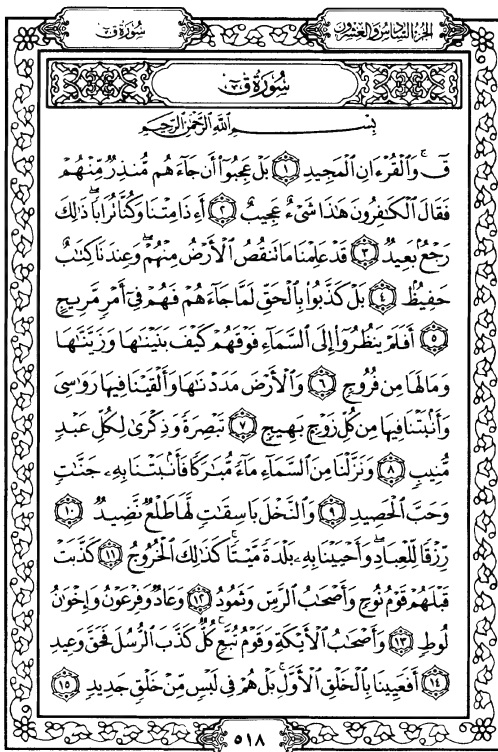 الجزء السادس والعشرون
سورة ق
سورة ق
بِسْمِ اللَّهِ الرَّحْمَٰنِ الرَّحِيمِ
قٓ ۚ وَالْقُرْءَانِ الْمَجِيدِ ١ بَلْ عَجِبُوٓا۟ أَن جَآءَهُم مُّنذِرٌ مِّنْهُمْ
فَقَالَ الْكَٰفِرُونَ هَٰذَا شَىْءٌ عَجِيبٌ ٢ أَءِذَا مِتْنَا وَكُنَّا تُرَابًا ۖ ذَٰلِكَ
رَجْعٌۢ بَعِيدٌ ٣ قَدْ عَلِمْنَا مَا تَنقُصُ الْأَرْضُ مِنْهُمْ ۖ وَعِندَنَا كِتَٰبٌ
حَفِيظٌۢ ٤ بَلْ كَذَّبُوا۟ بِالْحَقِّ لَمَّا جَآءَهُمْ فَهُمْ فِىٓ أَمْرٍ مَّرِيجٍ
٥ أَفَلَمْ يَنظُرُوٓا۟ إِلَى السَّمَآءِ فَوْقَهُمْ كَيْفَ بَنَيْنَٰهَا وَزَيَّنَّٰهَا
وَمَا لَهَا مِن فُرُوجٍ ٦ وَالْأَرْضَ مَدَدْنَٰهَا وَأَلْقَيْنَا فِيهَا رَوَٰسِىَ
وَأَنۢبَتْنَا فِيهَا مِن كُلِّ زَوْجٍۭ بَهِيجٍ ٧ تَبْصِرَةً وَذِكْرَىٰ لِكُلِّ عَبْدٍ
مُّنِيبٍ ٨ وَنَزَّلْنَا مِنَ السَّمَآءِ مَآءً مُّبَٰرَكًا فَأَنۢبَتْنَا بِهِۦ جَنَّٰتٍ
وَحَبَّ الْحَصِيدِ ٩ وَالنَّخْلَ بَاسِقَٰتٍ لَّهَا طَلْعٌ نَّضِيدٌ ١٠
رِّزْقًا لِّلْعِبَادِ ۖ وَأَحْيَيْنَا بِهِۦ بَلْدَةً مَّيْتًا ۚ كَذَٰلِكَ الْخُرُوجُ ١١ كَذَّبَتْ
قَبْلَهُمْ قَوْمُ نُوحٍ وَأَصْحَٰبُ الرَّسِّ وَثَمُودُ ١٢ وَعَادٌ وَفِرْعَوْنُ وَإِخْوَٰنُ
لُوطٍ ١٣ وَأَصْحَٰبُ الْأَيْكَةِ وَقَوْمُ تُبَّعٍ ۚ كُلٌّ كَذَّبَ الرُّسُلَ فَحَقَّ وَعِيدِ
١٤ أَفَعَيِينَا بِالْخَلْقِ الْأَوَّلِ ۚ بَلْ هُمْ فِى لَبْسٍ مِّنْ خَلْقٍ جَدِيدٍ ١٥
٥١٨